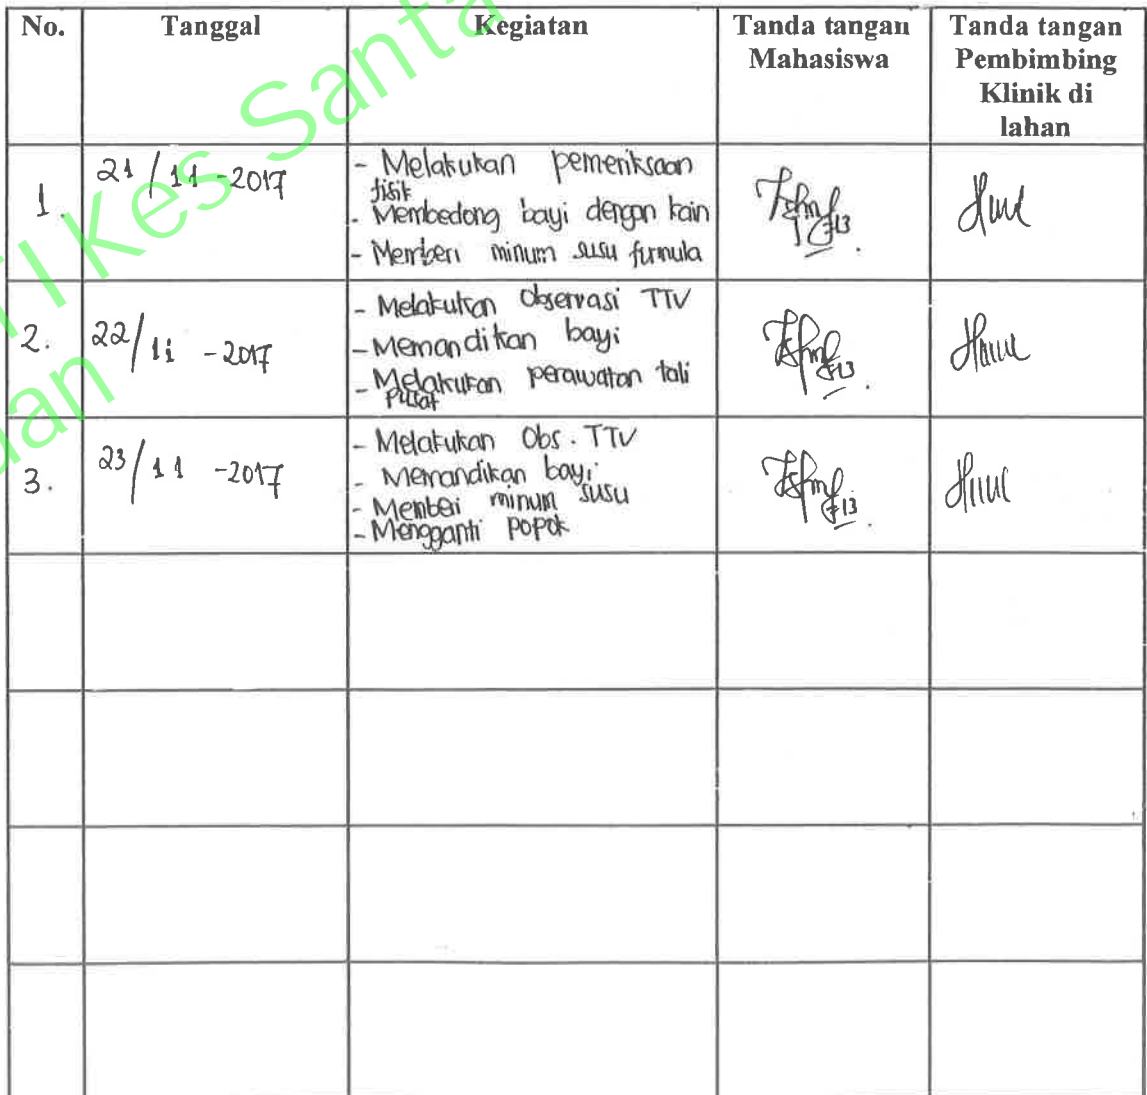 No.
Tanggal
Kegiatan
Tanda tangan
Mahasiswa
Tanda tangan
Pembimbing
Klinik di
lahan
1.
21/11-2017
- Melakukan pemeriksaan
fisik
- Membedong bayi dengan kain
- Memberi minum susu formula
2.
22/11 -2017
- Melakukan Observasi TTV
- Memandikan bayi
- Melakukan perawatan tali
pusat
3.
23/11 -2017
- Melakukan Obs. TTV
- Memandikan bayi
- Memberi minum susu
- Mengganti popok
Kes Santa